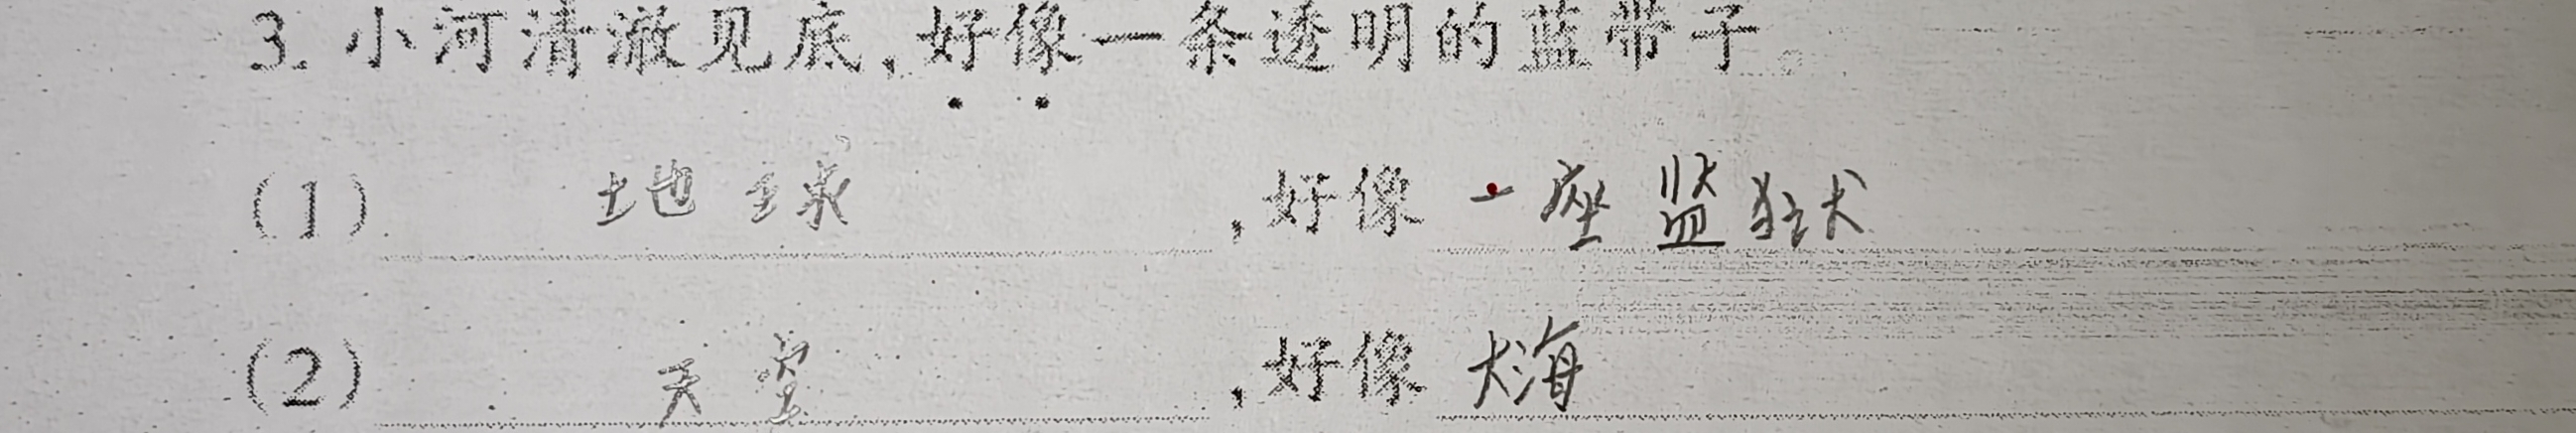 3. 小河清澈见底,好像一条透明的蓝带子。
(1) 地球 ,好像 一座监狱
(2) 天空 ,好像 大海